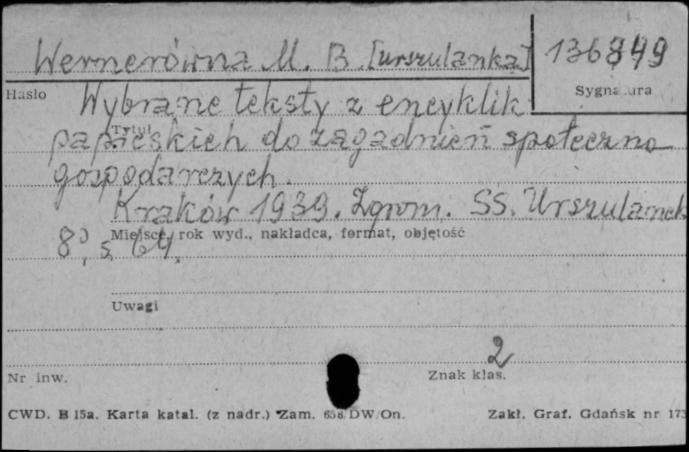 Wernerówna M. B. [urszulanka] 136849
Hasło Sygnatura
Wybrane teksty z encyklik
Tytuł
papieskich do zagadnień społeczno
gospodarczych.
Kraków 1939. Zgrom. SS. Urszulanek
Miejsce, rok wyd., nakładca, format, objętość
8°, s. 64.
Uwagi
2
Nr inw. Znak klas.
CWD. B 15a. Karta katal. (z nadr.) Zam. 658/DW/On. Zakł. Graf. Gdańsk nr 173